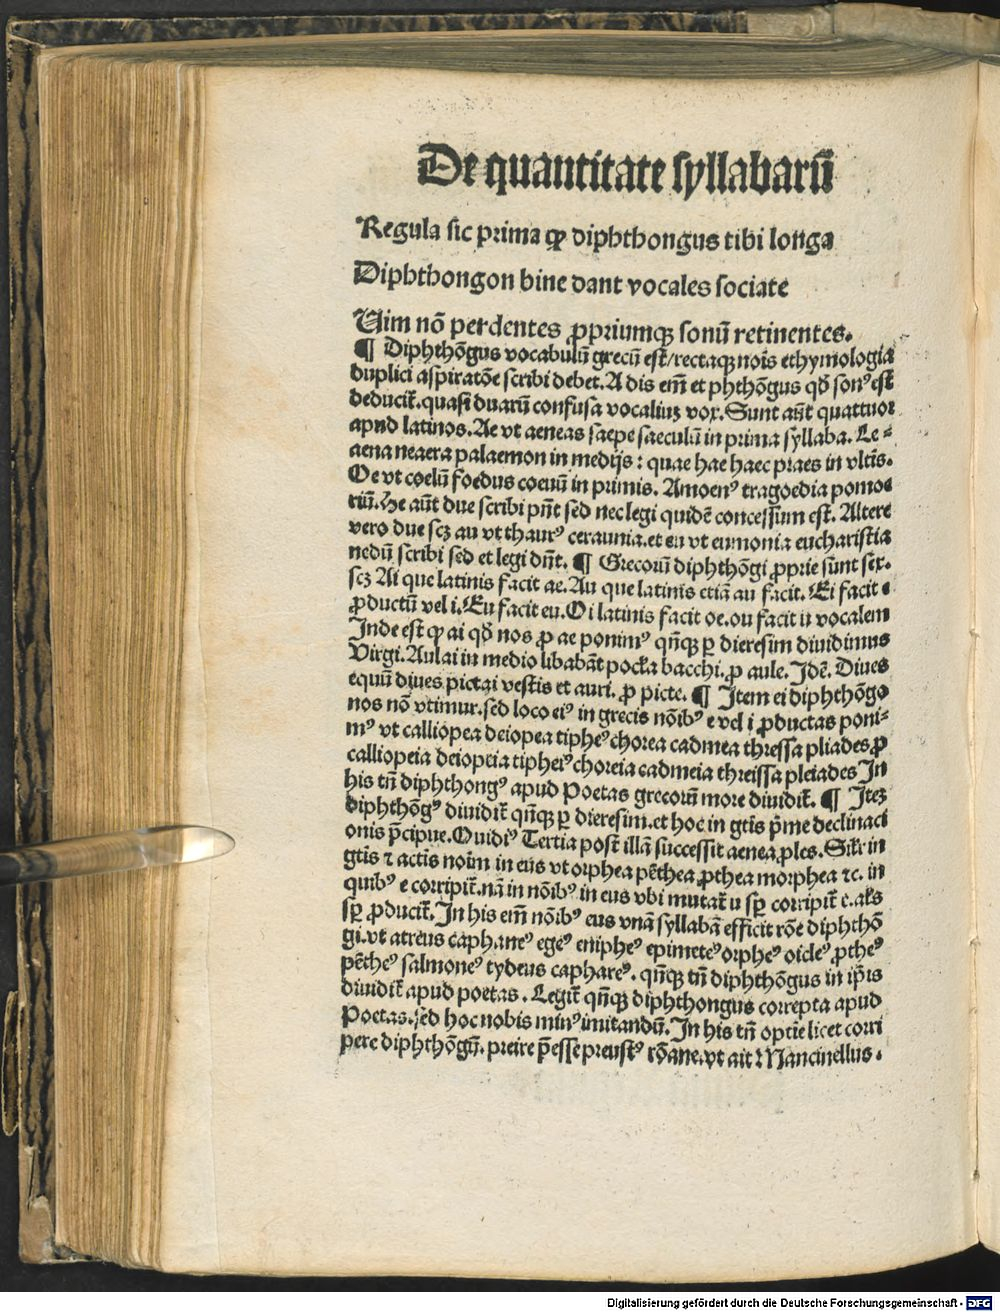 De quantitate syllabarū
Regula sic prima ꝙ diphthongus tibi longa
Diphthongon bine dant vocales sociate
Uim nō perdentes ꝓpriumqꝫ sonū retinentes.
¶ Diphthōgus vocabulū grecū est/rectaqꝫ nois ethymologia
duplici aspiratōe scribi debet. A dis em̄ et phthōgus qd̄ sonꝰ est
deducit̄. quasi duarū confusa vocaliuꝫ vox. Sunt aūt quattuor
apud latinos. Ae vt aeneas saepe saeculū in prima syllaba. Le⸗
aena neaera palaemon in medijs : quae hae haec praes in vltīs.
Oe vt coelū foedus coeuū in primis. Amoenꝰ tragoedia pomoe
riū. He aūt due scribi pn̄t sed nec legi quidē concessum est. Altere
vero due scꝫ au vt thaurꝰ ceraunia. et eu vt eunonia eucharistia
nedū scribi sed et legi dn̄t. ¶ Grecorū diphthōgi ꝓprie sunt sex.
scꝫ Ai que latinis facit ae. Au que latinis etiā au facit. Ei facit e
ꝓductū vel i. Eu facit eu. Oi latinis facit oe. ou facit u vocalem
Inde est ꝙ ai qd̄ nos ꝓ ae ponimꝰ qn̄qꝫ ꝑ dieresim diuidimus
Virgi. Aulai in medio libabāt pocl̄a bacchi. ꝓ aule. Idē. Diues
equū diues pictai vestis et auri. ꝓ picte. ¶ Item ei diphthōgo
nos nō vtimur. sed loco eiꝰ in grecis nōibꝰ e vel i ꝓductas poni⸗
mꝰ vt calliopea deiopea tipheꝰ chorea cadmea thressa pliades ꝓ
calliopeia deiopeia tipheiꝰ choreia cadmeia threissa pleiades In
his tn̄ diphthongꝰ apud Poetas grecorū more diuidit̄. ¶ Iteꝫ
diphthōgꝰ diuidit̄ qn̄qꝫ ꝑ dieresim. et hoc in gtīs p̄me declinaci
onis p̄cipue. Ouidiꝰ Tertia post illā successit aenea ꝓles. Sil̄r in
gtīs ⁊ actīs noīm in eus vt orphea pēthea ꝓthea morphea ⁊c. in
quibꝰ e corripit̄. nā in nōibꝰ in eus vbi mutat̄ u sp̄ corripit̄ e. al̄s
sp̄ ꝓducit̄. In his em̄ nōibꝰ eus vnā syllabā efficit rōe diphthō
gi. vt atreus caphaneꝰ egeꝰ enipheꝰ epimeteꝰ orpheꝰ oicleꝰ ꝓtheꝰ
pētheꝰ salmoneꝰ tydeus caphareꝰ. qn̄qꝫ tn̄ diphthōgus in ip̄is
diuidit̄ apud poetas. Legit̄ qn̄qꝫ diphthongus correpta apud
Poetas. sed hoc nobis minꝰ imitandū. In his tn̄ optie licet corri
pere diphthōgū. preire p̄esse preustꝰ rōane. vt ait Mancinellus.
Digitalisierung gefördert durch die Deutsche Forschungsgemeinschaft - DFG